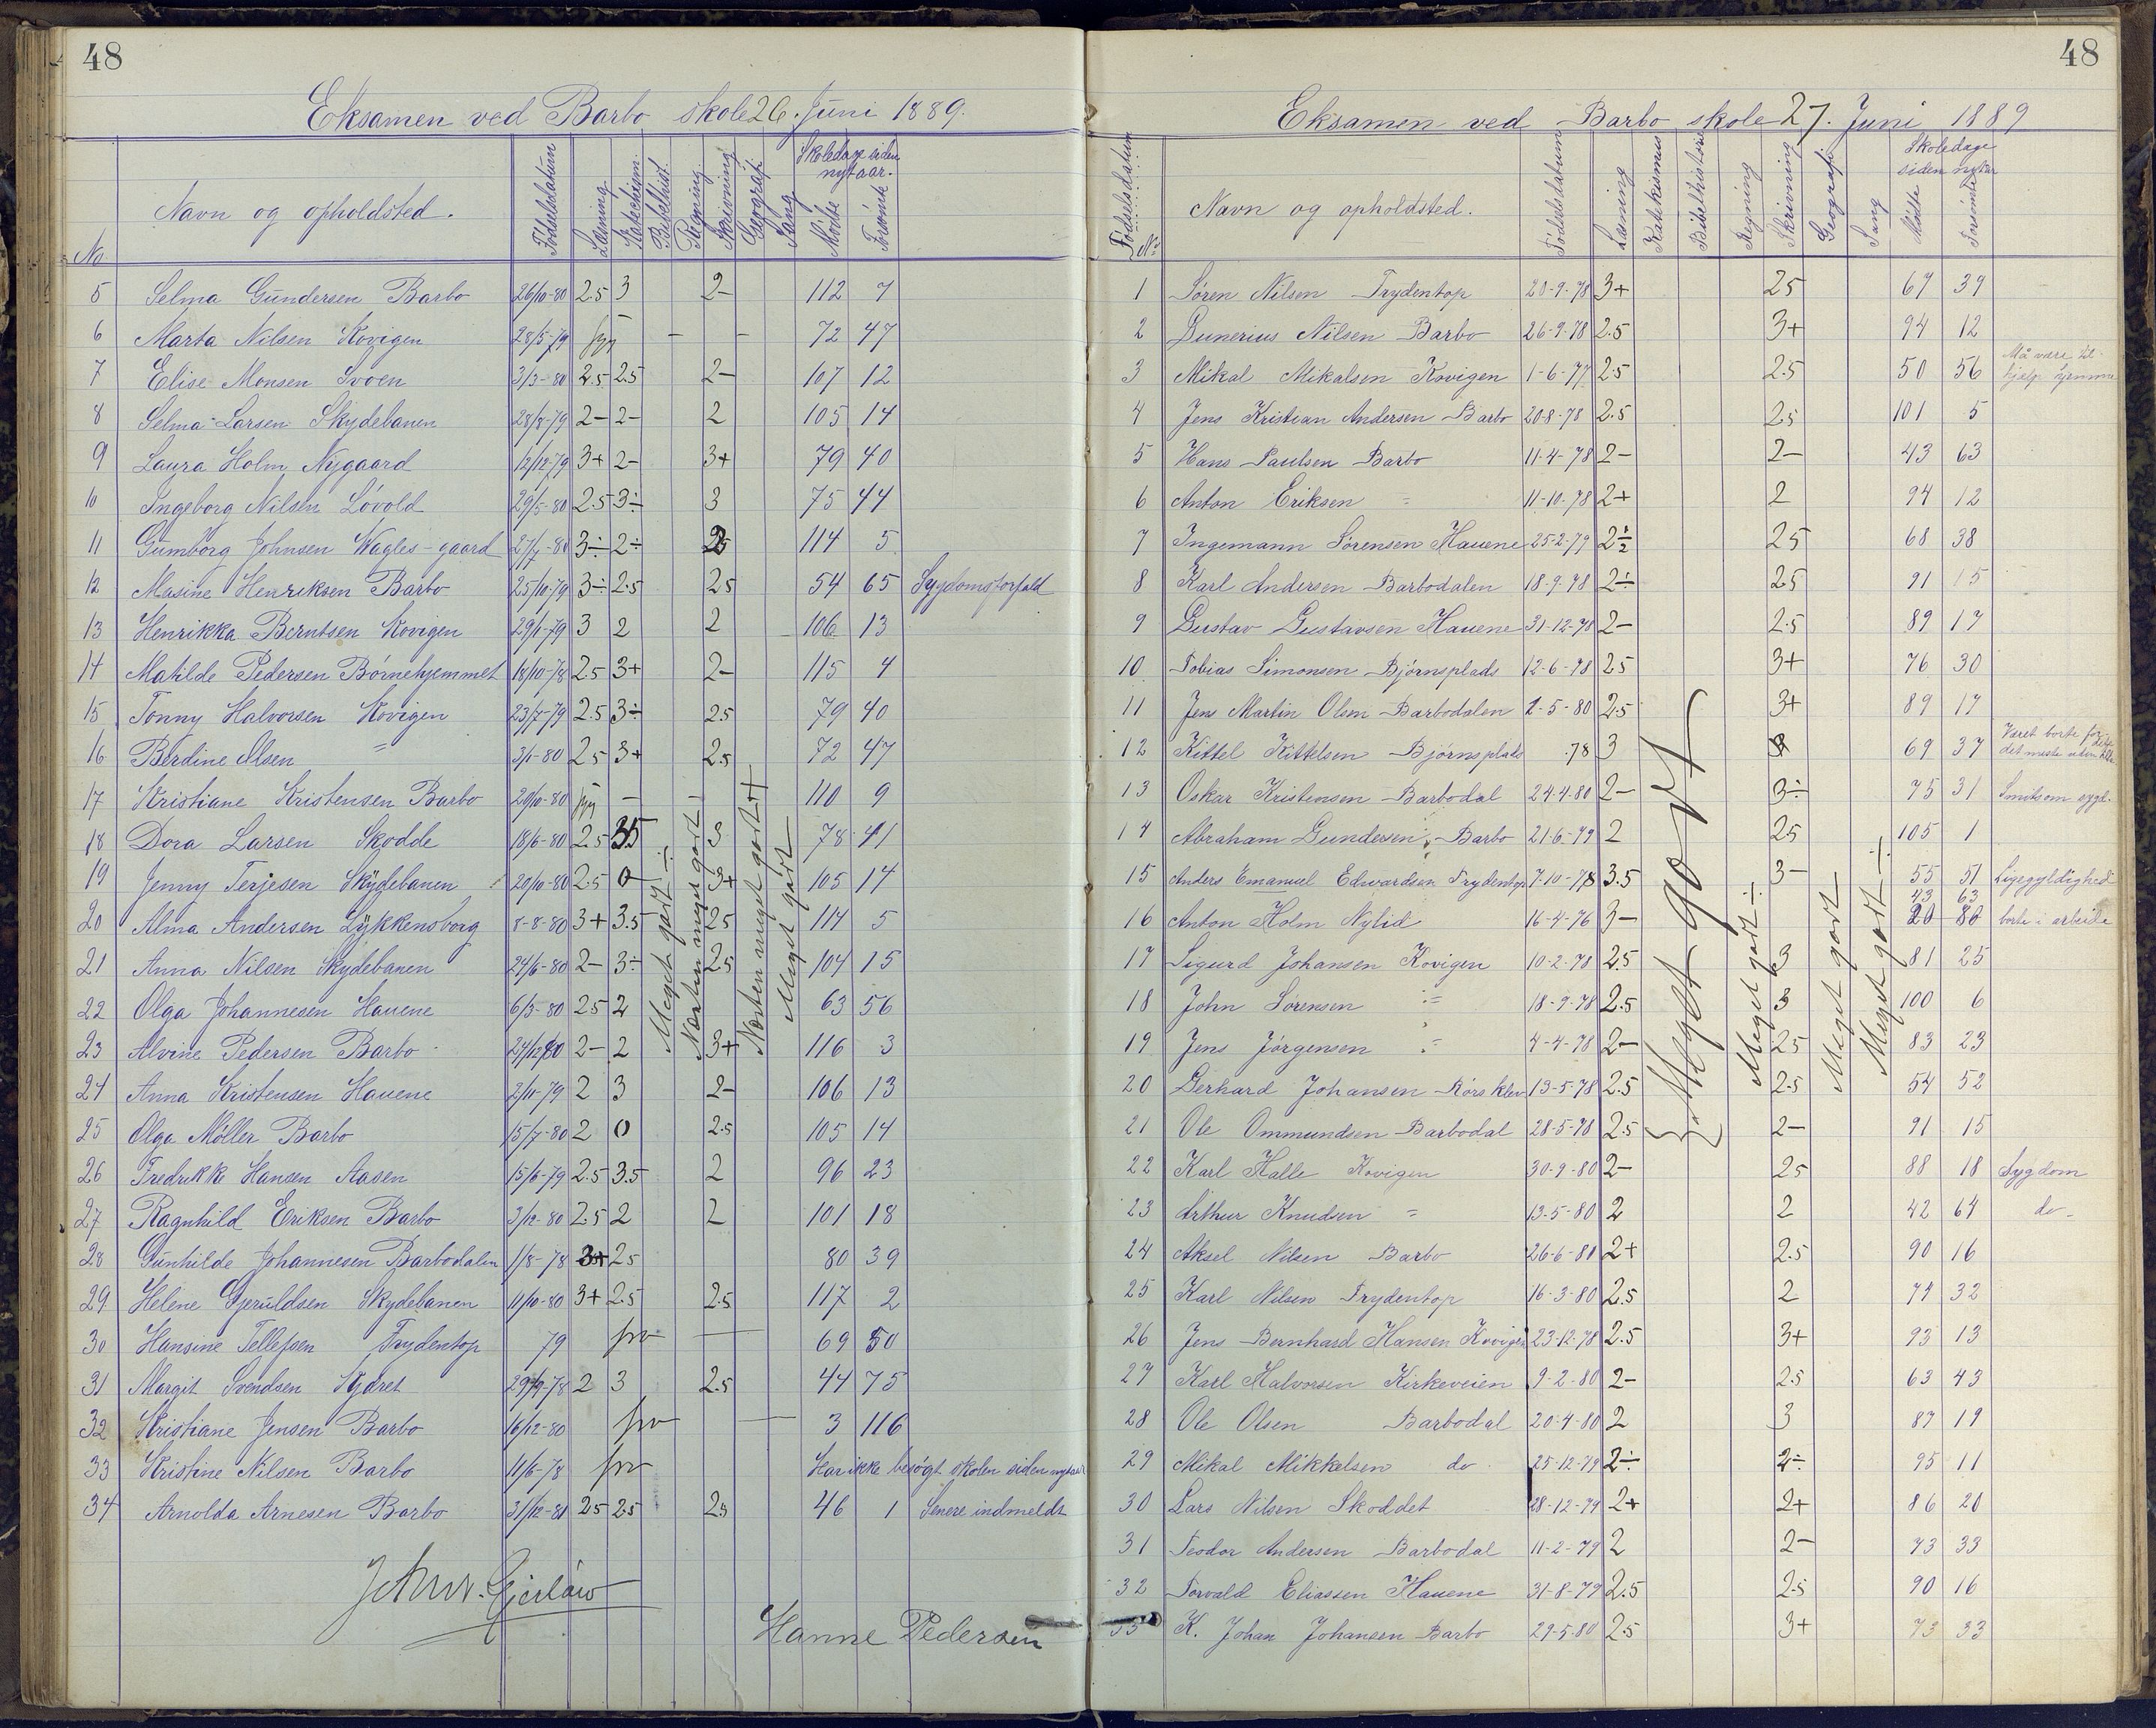 48
Eksamen ved Barbo skole 26. Juni 1889.
No
Navn og opholdsted.
Fødselsdatum
Læsning
Katechism.
Bibelhist.
Regning
Skrivning
Geografi
Sang
Skoledage siden nytaar.
Mødte
Forsømte
5 Selma Gundersen Barbo 26/10-80 2.5 3 2- 112 7
6 Marta Nilsen Kovigen 28/5-79 - - 72 47
7 Elise Monsen Svoen 3/3-80 2.5 2.5 2- 107 12
8 Selma Larsen Skydebanen 28/8-79 2- 2- 2 105 14
9 Laura Holm Nygaard 12/12-79 3+ 2- 3+ 79 40
10 Ingeborg Nilsen Løvold 29/5-80 2.5 3÷ 3 75 44
11 Gumborg Johnsen Wagles-gaard 27/7-80 3÷ 2÷ 25 114 5
12 Masine Henriksen Barbo 25/10-79 3÷ 2.5 25 54 65 Sygdomsforfald
13 Henrikka Berntsen Kovigen 29/1-79 3 2 2 106 13
14 Matilde Pedersen Børnehjemmet 18/10-78 2.5 3+ 2- 115 4
15 Tonny Halvorsen Kovigen 23/7-79 2.5 3÷ 2.5 79 40
16 Berdine Olsen = 3/1-80 2.5 3+ 2.5 72 47
17 Kristiane Kristensen Barbo 20/10-80 - - 110 9
18 Dora Larsen Skodde 18/6-80 2.5 3.5 3 78 41
19 Jenny Terjesen Skydebanen 20/10-80 2.5 0 3+ 105 14
20 Alma Andersen Lykkensborg 8-8-80 3+ 3.5 25 114 5
21 Anna Nilsen Skydebanen 24/6-80 2- 3÷ 2.5 104 15
22 Olga Johannesen Hauene 6/3-80 2.5 2 63 56
23 Alvine Pedersen Barbo 24/12 80 2- 2 3+ 116 3
24 Anna Kristensen Hauene 2/11-79 2 3 2- 106 13
25 Olga Møller Barbo 15/7-80 2 0 2.5 105 14
26 Fredrikke Hansen Aasen 15/6-79 2.5 3.5 2 96 23
27 Ragnhild Eriksen Barbo 3/12-80 2.5 2 2 101 18
28 Gunhilde Johannesen Barbodalen 1/8-78 3+ 2.5 80 39
29 Helene Gjeruldsen Skydebanen 11/10-80 3+ 2.5 2.5 117 2
30 Hansine Tellefsen Frydentop 79 frv 69 50
31 Margit Svendsen 29/9-78 2 3 2.5 44 75
32 Kristiane Jensen Barbo 10/12-80 frv 3 116
33 Kristine Nilsen Barbo 11/6-78 frv Har ikke besøgt skolen siden nytaar
34 Arnolda Arnesen Barbo 31/12-81 25 2.5 2.5 46 1 Senere indmeldt
Meget godt ÷
Næsten meget godt
Næsten meget godt +
Meget godt
Gjerløw
Hanne Pedersen
48
Eksamen ved Barbo skole 27. Juni 1889
Fødselsdatum
No
Navn og opholdsted.
Fødselsdatum
Læsning
Katekismus
Bibelhistorie
Regning
Skrivning
Geografi
Sang
Skoledage siden nytår
Mødte
Forsømte
1 Søren Nilsen Frydentop 20-9-78 3+ 25 67 39
2 Gunerius Nilsen Barbo 26-9-78 2.5 3+ 94 12
3 Mikal Mikalsen Kovigen 1-6-77 2.5 2.5 50 56 Må være til hjelp hjemme
4 Jens Kristian Andersen Barbo 20-8-78 2.5 2.5 101 5
5 Hans Paulsen Barbo 11-4-78 2- 2- 43 63
6 Anton Eriksen = 11-10-78 2+ 2 94 12
7 Ingemann Sørensen Hauene 25-2-79 2÷ 25 68 38
8 Karl Andersen Barbodalen 18-9-78 2÷ 25 91 15
9 Gustav Gustavsen Hauene 31-12-78 2- 2.5 89 17
10 Tobias Simonsen Bjørnsplads 12-6-78 25 3+ 76 30
11 Jens Martin Olsen Barbodalen 1-5-80 2.5 3+ 89 17
12 Kittel Kittelsen Bjørnsplads .78 3 69 37 Været borte for det meste uden
13 Oskar Kristensen Barbodal 24-4-80 2- 3÷ 75 31 Smitsom sygd.
14 Abraham Gundersen Barbo 21-6-79 2 25 105 1
15 Anders Emanuel Edwardsen Frydentop 7-10-78 3.5 3- 55 51 Ligegyldighed
43 63
16 Anton Holm Nylid 16-4-76 3- 20 86 borte i arbeide
17 Sigurd Johansen Kovigen 10-2-78 2.5 3 81 25
18 John Sørensen = 18-9-78 2.5 3 100 6
19 Jens Jørgensen = 4-4-78 2- 25 83 23
20 Gerhard Johansen Rørs klev 13-5-78 2.5 2.5 54 52
21 Ole Ommundsen Barbodal 28-5-78 2.5 2- 91 15
22 Karl Halle Kovigen 30-9-80 2- 25 88 18 Sygdom
23 Arthur Knudsen = 13-5-80 2 2 42 64 do-
24 Aksel Nilsen Barbo 26-6-81 2+ 2.5 90 16
25 Karl Nilsen Frydentop 16-3-80 2.5 2 74 32
26 Jens Bernhard Hansen Kovigen 23-12-78 2.5 3+ 93 13
27 Karl Halvorsen Kirkeveien 9-2-80 2- 2.5 63 43
28 Ole Olsen Barbodal 20-4-80 2 3 87 19
29 Mikal Mikkelsen do 25-12-79 2÷ 2÷ 95 11
30 Lars Nilsen Skoddet 28-12-79 2+ 2+ 86 20
31 Teodor Andersen Barbodal 11-2-79 2 2- 73 33
32 Torvald Eliassen Hauene 31-8-79 2.5 2.5 90 16
33 K. Johan Johansen Barbo 29-5-80 2.5 3+ 73 33
Meget godt
Meget godt ÷
Meget godt
Meget godt ÷